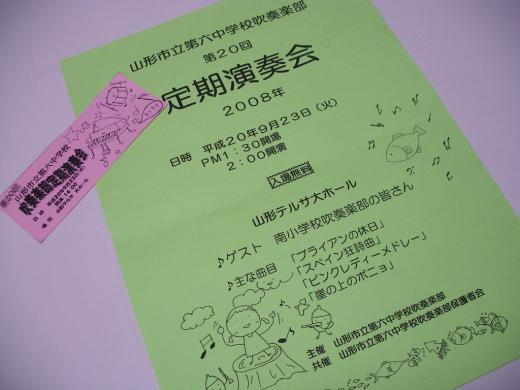 山形市立第六中学校吹奏楽部
第20回
定期演奏会
2008年
日時 平成20年9月23日(火)
PM1:30開場
2:00開演
入場無料
山形テルサ大ホール
♪ゲスト 南小学校吹奏楽部の皆さん
♪主な曲目 「ブライアンの休日」
「スペイン狂詩曲」
「ピンクレディーメドレー」
「崖の上のポニョ」
主催 山形市立第六中学校吹奏楽部
共催 山形市立第六中学校吹奏楽部保護者会
第20回
山形市立第六中学校
吹奏楽部定期演奏会
日時 平成20年9月23日(火)